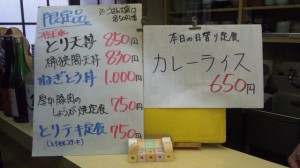 限定品
とり天丼 850円
桶狭間天丼 830円
ねぎとろ丼 1,000円
厚切豚肉の
しょうが焼定食 750円
とりテキ定食 750円
本日の日替り定食
カレーライス
650円